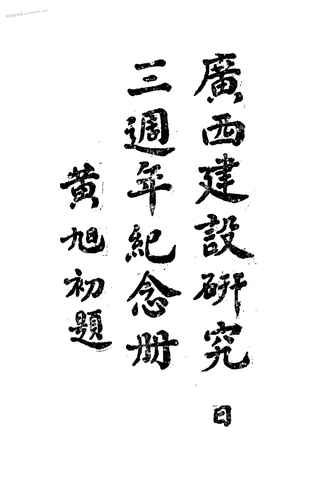 廣西建設研究
三週年紀念册
黃旭初題